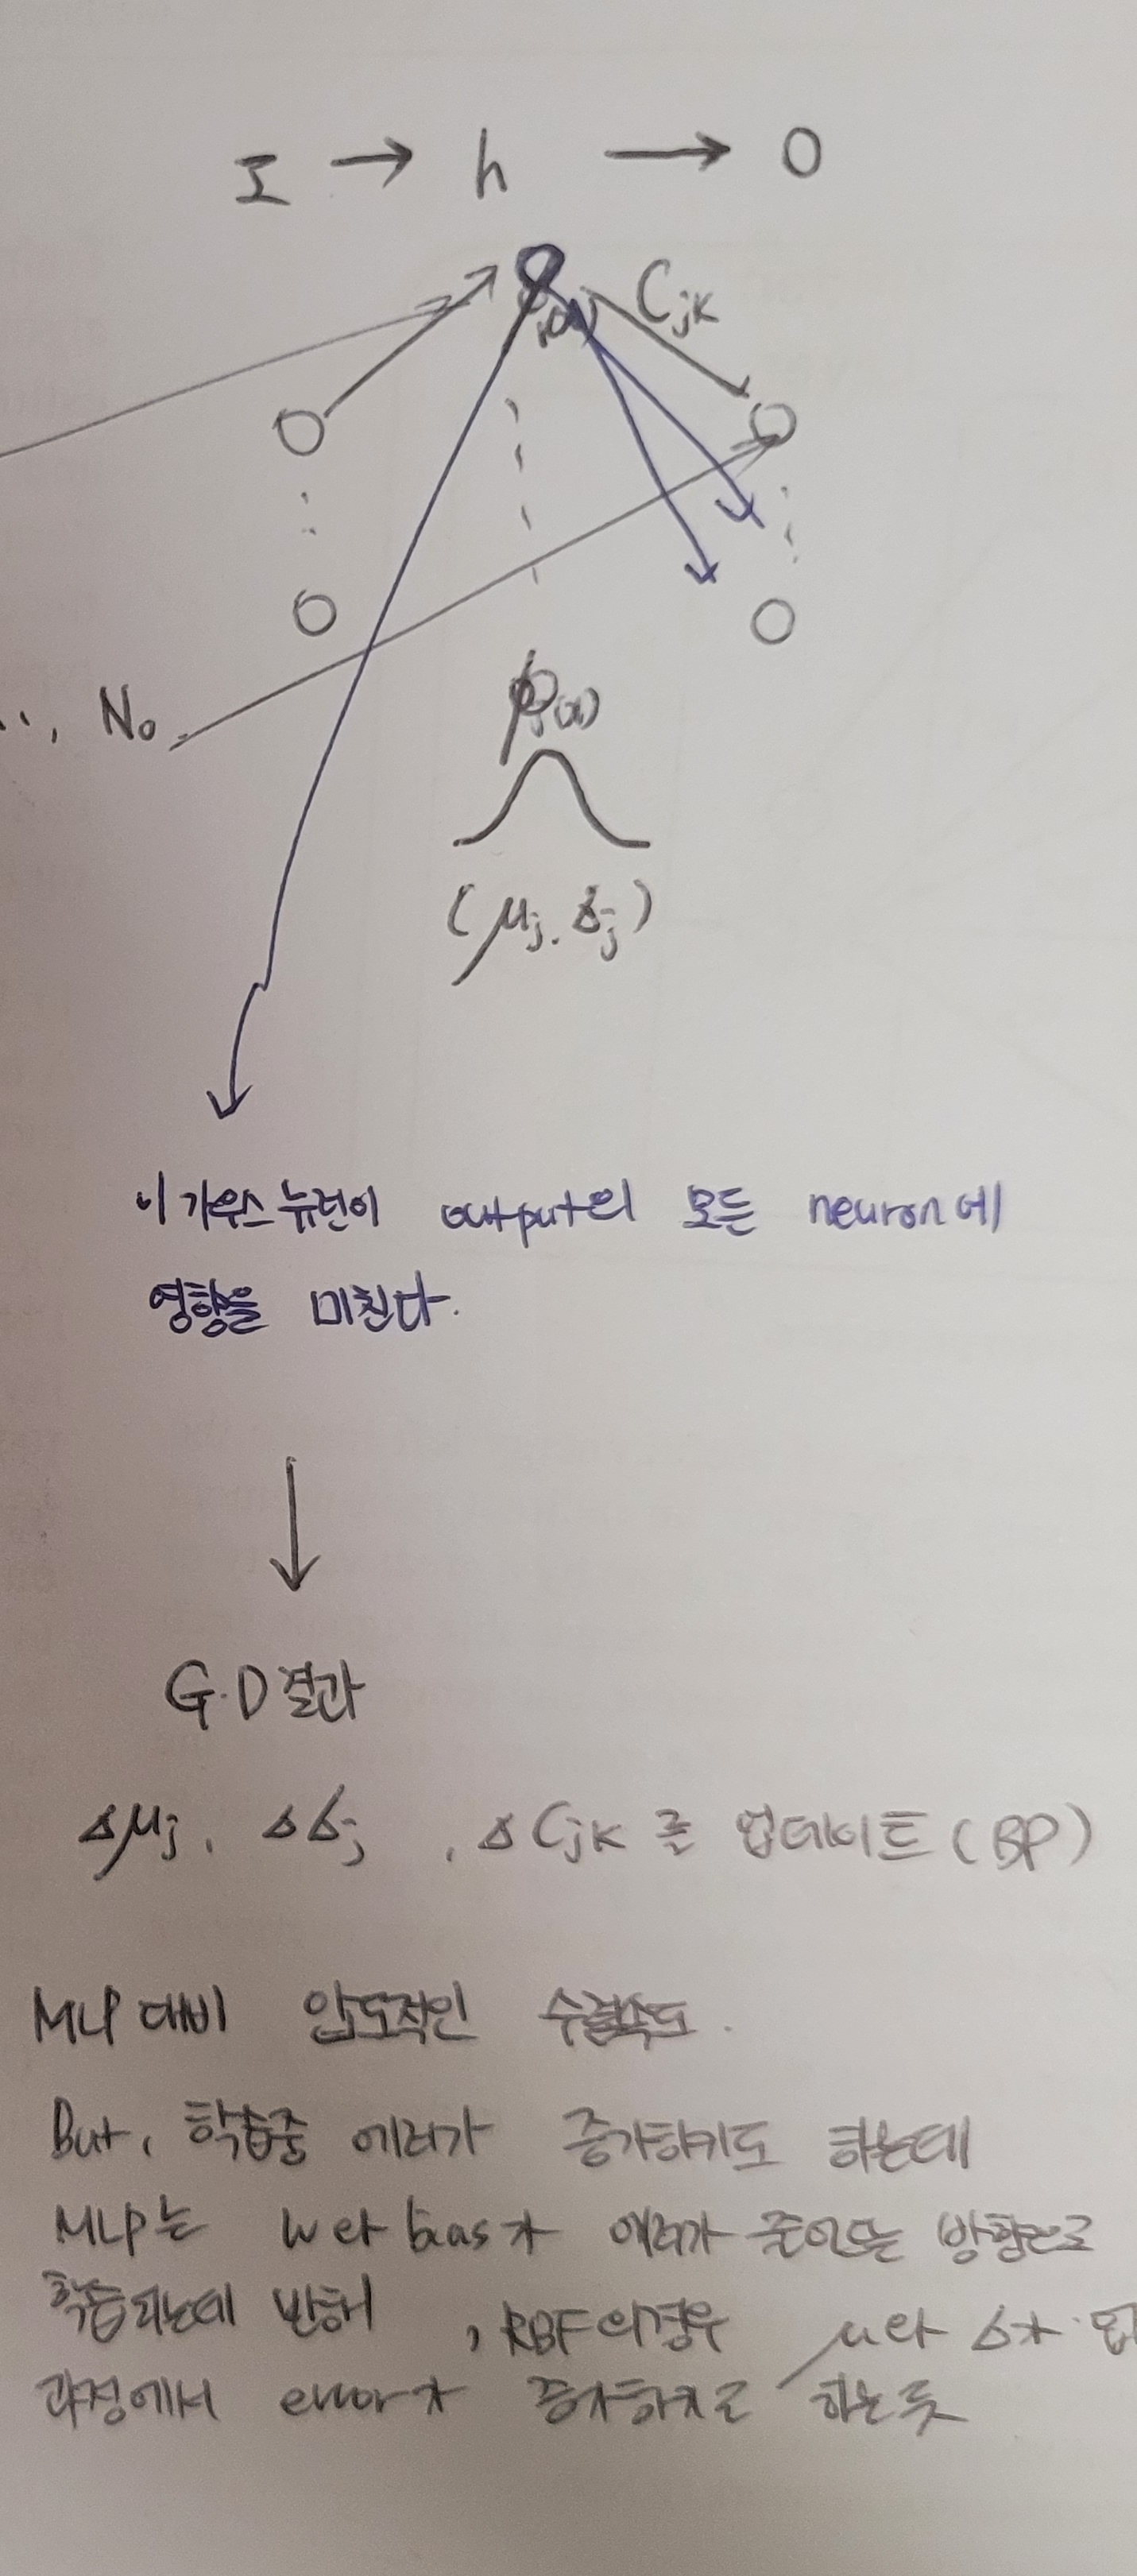 I → h → O
C_jk
.., No.
φ_j(x)
(μj, δj)
이 가우스 뉴런이 output의 모든 neuron에
영향을 미친다.
G.D 결과
Δμj, Δδj, ΔCjk 를 업데이트 (BP)
MLP 대비 압도적인 수렴속도.
But, 학습중 에러가 증가하기도 하는데
MLP는 w와 bias가 에러가 줄어드는 방향으로
학습되는데 반해, RBF의 경우 μ와 δ가
과정에서 error가 증가하기도 하는듯